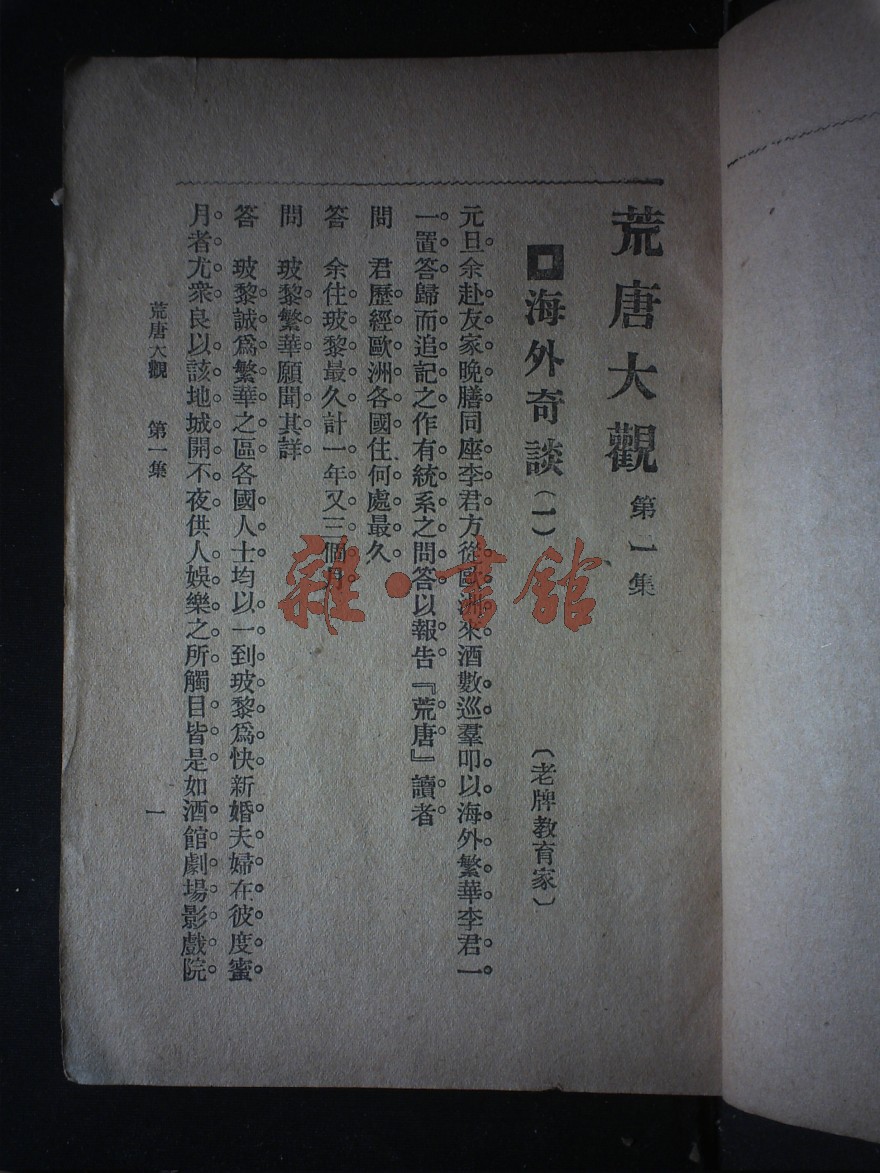 荒唐大觀 第一集
海外奇談(一) 〔老牌教育家〕
元旦余赴友家晚膳同座李君方從歐洲來酒數巡羣叩以海外繁華李君一
一置答歸而追記之作有統系之問答以報告『荒唐』讀者
問 君歷經歐洲各國住何處最久
答 余住玻黎最久計一年又三個月
問 玻黎繁華願聞其詳
答 玻黎誠爲繁華之區各國人士均以一到玻黎爲快新婚夫婦在彼度蜜
月者尤衆良以該地城開不夜供人娛樂之所觸目皆是如酒館劇場影戲院
荒唐大觀 第一集 一
雜·書館